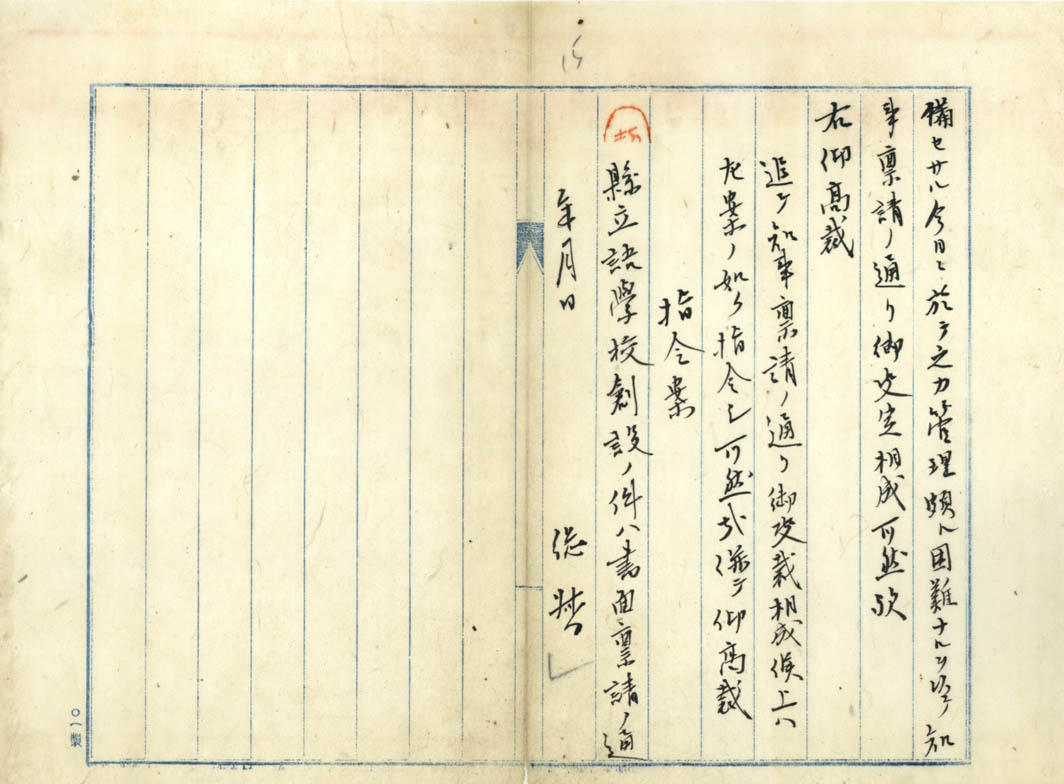 備セサル今日ニ於テ之カ管理頗ル困難ナル 知
事稟請ノ通リ御決定相成可然歟
右仰高裁
追テ知事稟請ノ通リ御決裁相成候上ハ
左案ノ如ク指令シ可然哉併テ仰高裁
指令案
縣立語學校創設ノ件ハ書面稟請ノ通
年月日
総督